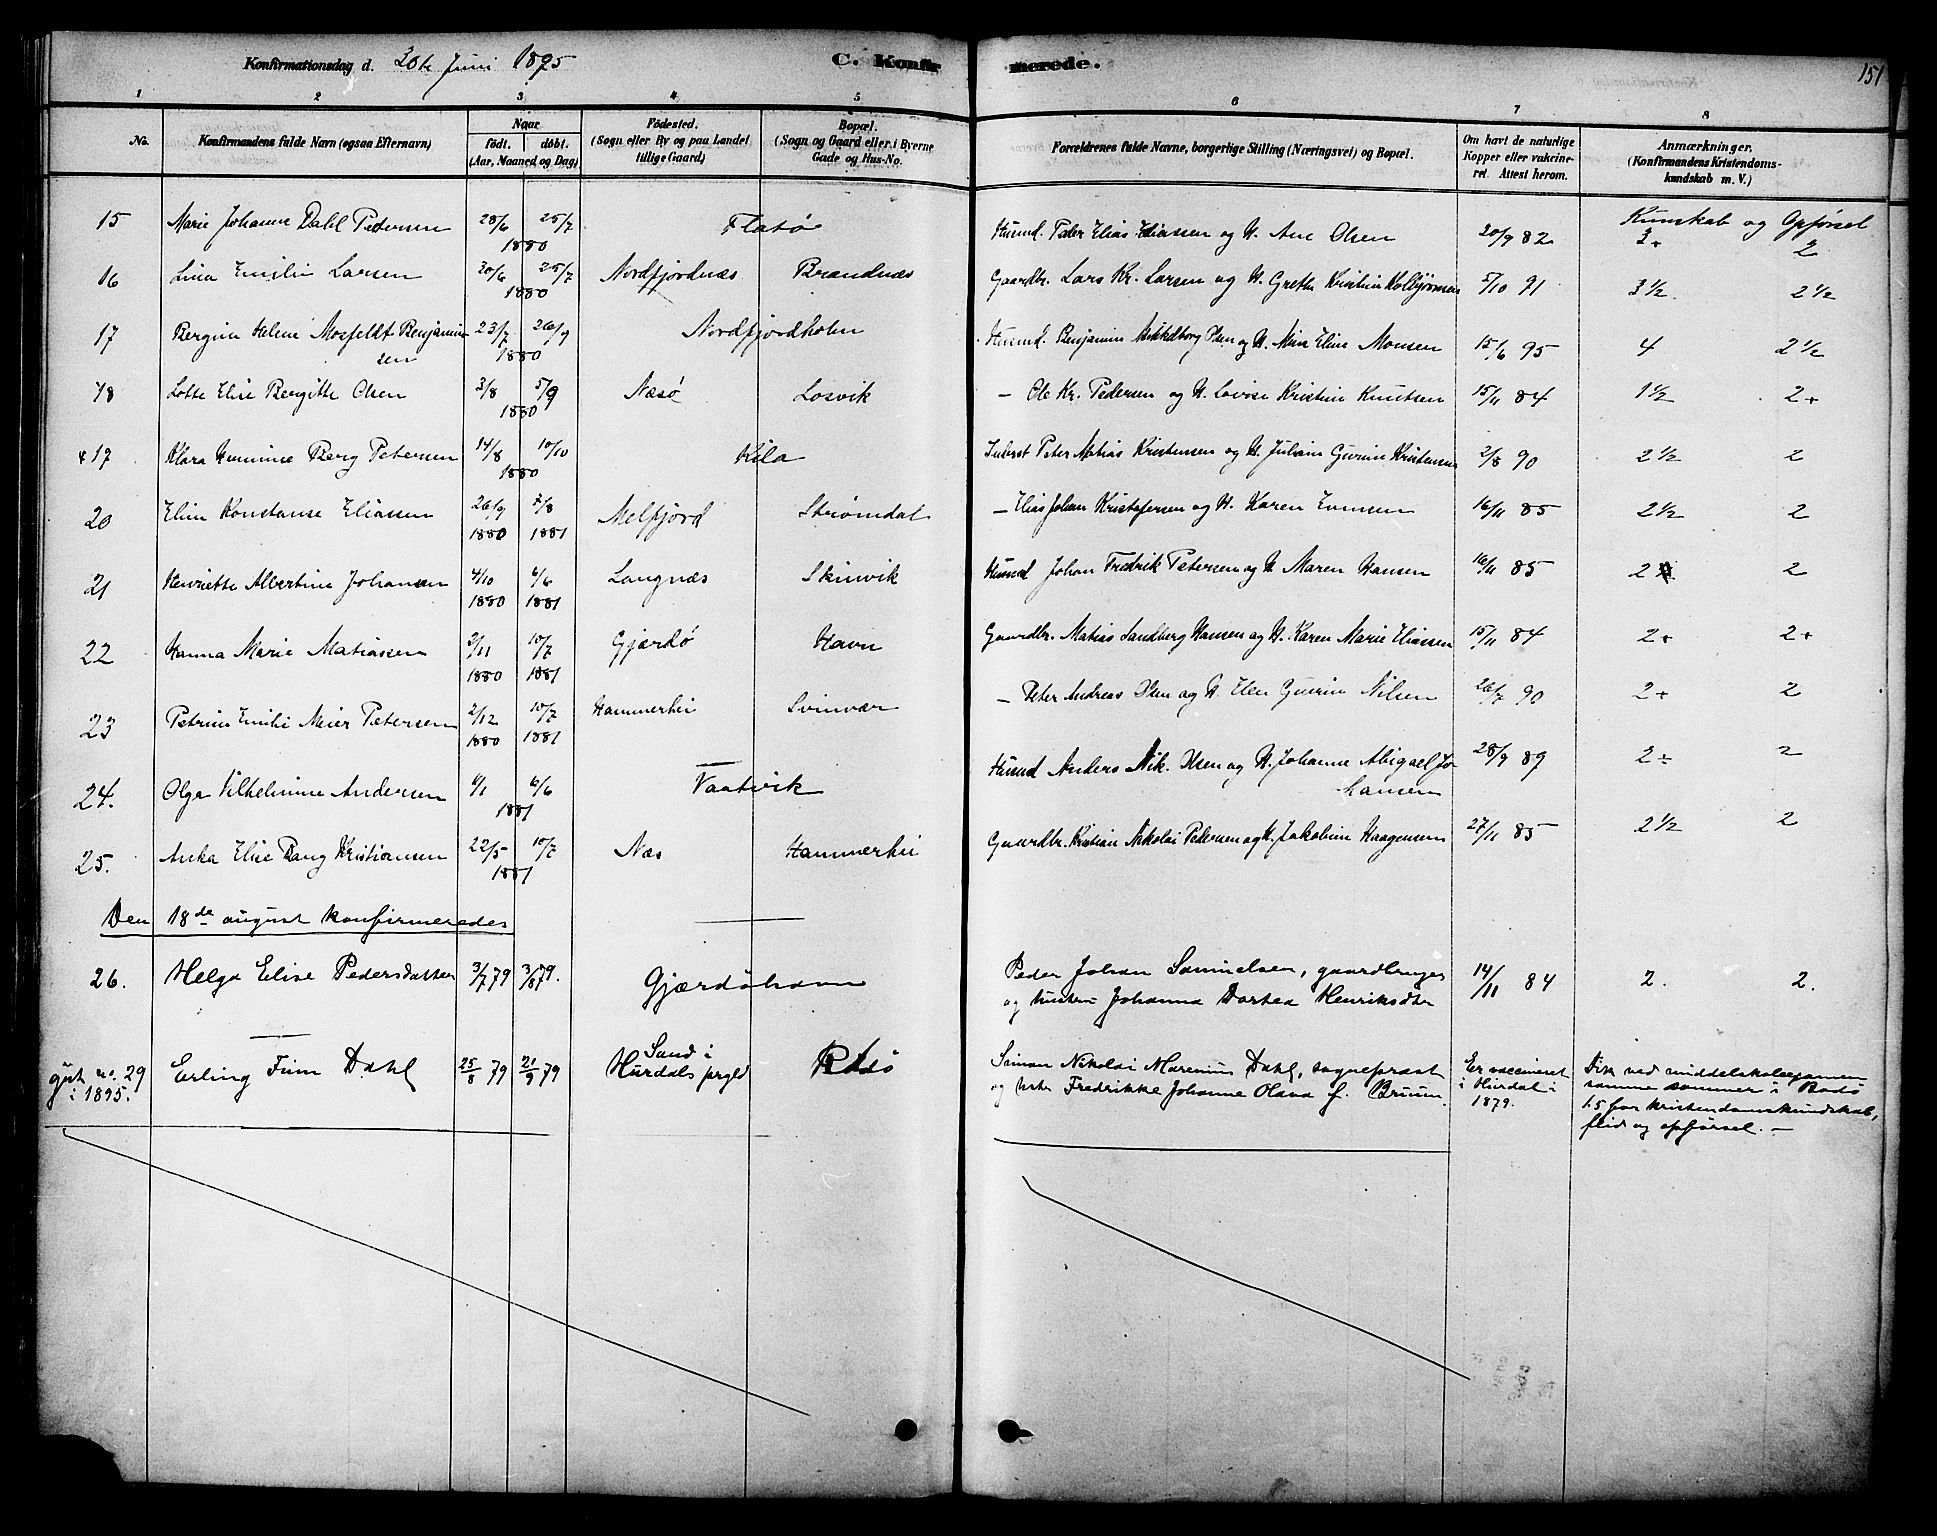 Konfirmationsdag d. 30te Juni 1895 C. Konfirmerede. 151
1 2 3 4 5 6 7 8
No. Konfirmandens fulde Navn (ogsaa Efternavn) Naar født. døbt. (Aar, Maaned og Dag) Fødested. (Sogn eller By og paa Landet tillige Gaard) Bopæl. (Sogn og Gaard eller i Byerne Gade og Hus-No. Forældrenes fulde Navne, borgerlige Stilling (Næringsvei) og Bopæl. Om havt de naturlige Kopper eller vakcineret. Attest herom. Anmærkninger. (Konfirmandens Kristendomskundskab m. V.)
Kunskab og Opførsel
15 Marie Johanne Dahl Petersen 28/6 25/7 1880 Flatø Husmd. Peder Elias Eliassen og H. Ane Olsen 20/9 82 3+ 2
16 Lina Emilie Larsen 30/6 25/7 1880 Nordfjordnæs Brandnæs Gaardbr. Lars Kr. Larsen og H. Grethe Kristine Kolbjørnsen 5/10 91 3 1/2 2 1/2
17 Bergine Helene Mosfeldt Benjaminsen 23/7 26/9 1880 Nordfjordholm Husmd. Benjamin Mikkelborg Olsen og H. Mine Eline Monsen 15/6 95 4 2 1/2
18 Lotte Elise Bergitte Olsen 3/8 5/9 1880 Næsø Losvik - Ole Kr. Pedersen og H. Lovise Kristine Knutsen 15/11 84 1 1/2 2+
19 Klara Hermine Berg Petersen 14/8 10/10 1880 Kila Inderst Peter Matias Kristensen og H. Juliane Gurine Kristensen 2/8 90 2 1/2 2
20 Eline Konstanse Eliassen 26/9 1880 7/8 1881 Melfjord Strømdal - Elias Johan Kristofersen og H. Karen Evensen 16/11 85 2 1/2 2
21 Henriette Albertine Johansen 4/10 1880 6/6 1881 Langnæs Skinvik Husmd Johan Fredrik Petersen og H Maren Hansen 16/11 85 2 2
22 Hanna Marie Matiassen 2/11 1880 10/7 1881 Gjærdø Havn Gaardbr. Matias Sandberg Hansen og H. Karen Marie Eliassen 15/11 84 2+ 2+
23 Petrine Emilie Meier Petersen 2/12 1880 10/7 1881 Hammerhei Svinvær - Peter Andreas Olsen og H Elen Gurine Nilsen 26/7 90 2+ 2
24. Olga Vilhelmine Andersen 6/1 6/6 1881 Vaatvik Husmd Anders Nik. Olsen og H. Johanne Abigael Johansen 28/9 89 2÷ 2
25. Anka Elise Bang Kristiansen 22/5 10/7 1881 Næs Hammerhei Gaardbr. Kristian Nikolai Pedersen og H. Jakobine Haagensen 27/11 85 2 1/2 2
Den 18de august konfirmeredes
26. Helga Elise Pedersdatter 3/7 79 3/8 79. Gjærdøhavn Peder Johan Samuelsen, gaardbruger
og hustru Johanna Dortea Henriksdtr 14/11 84 2. 2.
gjt. no. 29 i 1895. Erling Finn Dahl 25/8 79 21/9 79 Sund i Hurdals prgld Rødø Simon Nikolai Marenius Dahl, sogneprest
og hstr Fredrikke Johanne Olava f. Bruun. Er vaccineret i Hurdal i 1879. Fik ved middelskoleexamen
samme sommer i Bodø
1.5 for kristendomskundskab,
flid og opførsel. -